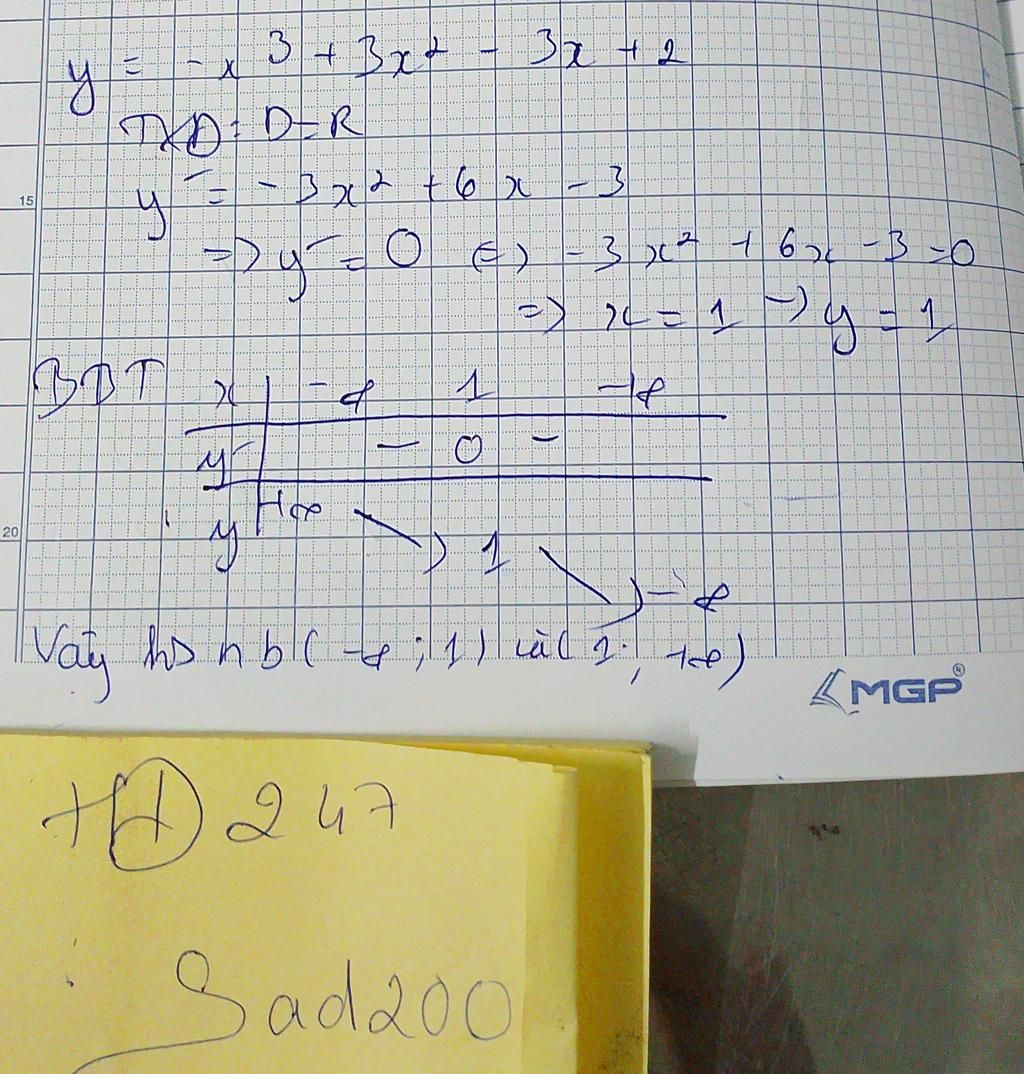 y = -x³ + 3x² - 3x + 2
TXĐ: D=R
y' = -3x² + 6x - 3
=> y' = 0 <=> -3x² + 6x - 3 = 0
=> x = 1 -> y = 1
BBT x -∞ 1 +∞
y' - 0 -
y +∞ 1 -∞
Vậy hs nb (-∞; 1) và (1; +∞)
MGP®
247
Sad200
15
20